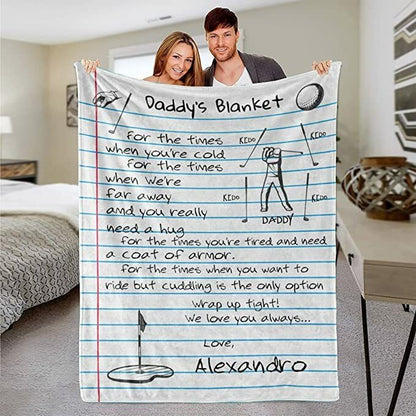 Daddy's Blanket
for the times
when you're cold
for the times
when we're
far away
and you really
need a hug
for the times you're tired and need
a coat of armor.
for the times when you want to
ride but cuddling is the only option
wrap up tight!
We love you always...
Love,
Alexandro
KEDO
KEDO
KEDO
KEDO
DADDY